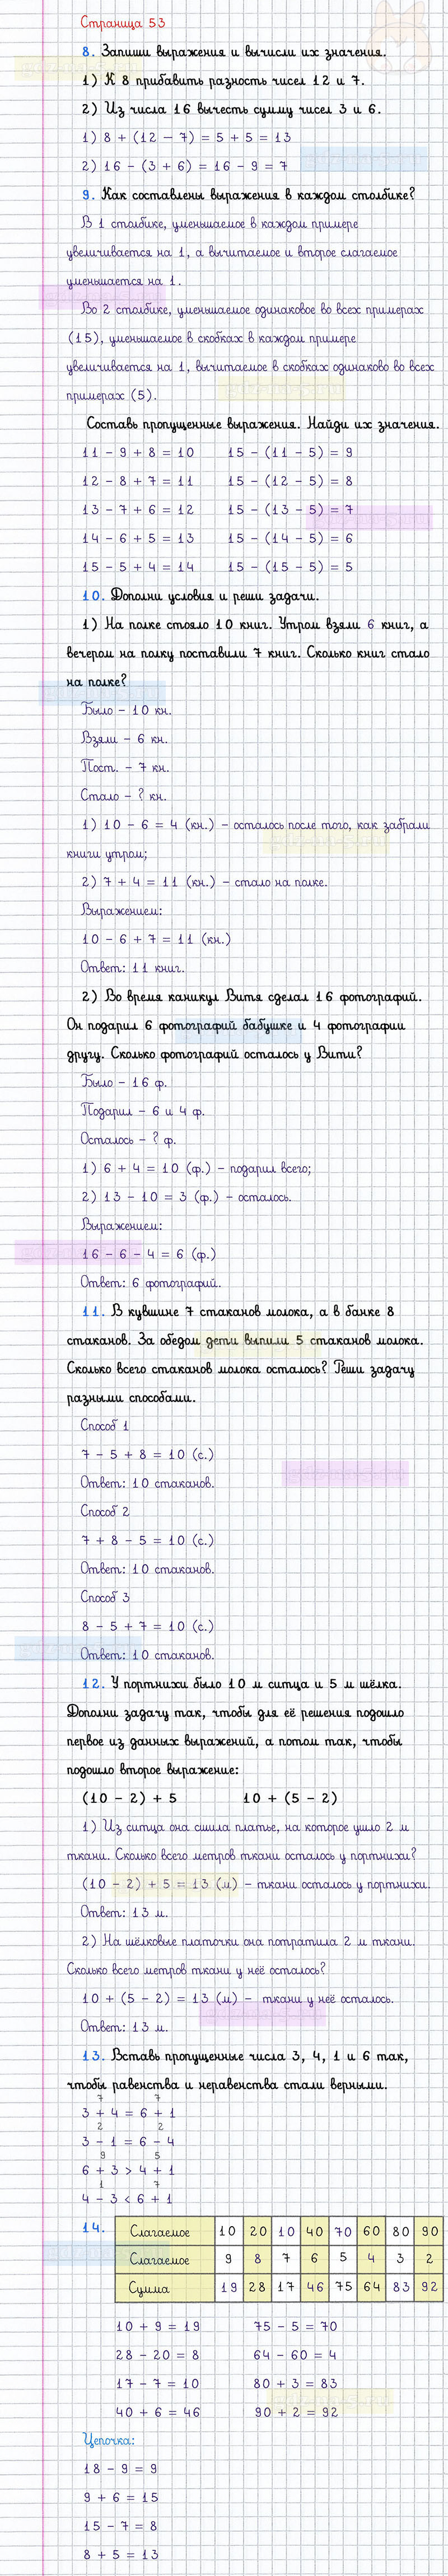 Страница 53
8. Запиши выражения и вычисли их значения.
1) К 8 прибавить разность чисел 12 и 7.
2) Из числа 16 вычесть сумму чисел 3 и 6.
1) 8 + (12 − 7) = 5 + 5 = 13
2) 16 − (3 + 6) = 16 − 9 = 7
9. Как составлены выражения в каждом столбике?
В 1 столбике, уменьшаемое в каждом примере
увеличивается на 1, а вычитаемое и второе слагаемое
уменьшается на 1.
Во 2 столбике, уменьшаемое одинаковое во всех примерах
(15), уменьшаемое в скобках в каждом примере
увеличивается на 1, вычитаемое в скобках одинаково во всех
примерах (5).
Составь пропущенные выражения. Найди их значения.
11 − 9 + 8 = 10 15 − (11 − 5) = 9
12 − 8 + 7 = 11 15 − (12 − 5) = 8
13 − 7 + 6 = 12 15 − (13 − 5) = 7
14 − 6 + 5 = 13 15 − (14 − 5) = 6
15 − 5 + 4 = 14 15 − (15 − 5) = 5
10. Дополни условия и реши задачи.
1) На полке стояло 10 книг. Утром взяли 6 книг, а
вечером на полку поставили 7 книг. Сколько книг стало
на полке?
Было − 10 кн.
Взяли − 6 кн.
Пост. − 7 кн.
Стало − ? кн.
1) 10 − 6 = 4 (кн.) − осталось после того, как забрали
книги утром;
2) 7 + 4 = 11 (кн.) − стало на полке.
Выражением:
10 − 6 + 7 = 11 (кн.)
Ответ: 11 книг.
2) Во время каникул Витя сделал 16 фотографий.
Он подарил 6 фотографий бабушке и 4 фотографии
другу. Сколько фотографий осталось у Вити?
Было − 16 ф.
Подарил − 6 и 4 ф.
Осталось − ? ф.
1) 6 + 4 = 10 (ф.) − подарил всего;
2) 13 − 10 = 3 (ф.) − осталось.
Выражением:
16 − 6 − 4 = 6 (ф.)
Ответ: 6 фотографий.
11. В кувшине 7 стаканов молока, а в банке 8
стаканов. За обедом дети выпили 5 стаканов молока.
Сколько всего стаканов молока осталось? Реши задачу
разными способами.
Способ 1
7 − 5 + 8 = 10 (с.)
Ответ: 10 стаканов.
Способ 2
7 + 8 − 5 = 10 (с.)
Ответ: 10 стаканов.
Способ 3
8 − 5 + 7 = 10 (с.)
Ответ: 10 стаканов.
12. У портнихи было 10 м ситца и 5 м шёлка.
Дополни задачу так, чтобы для её решения подошло
первое из данных выражений, а потом так, чтобы
подошло второе выражение:
(10 − 2) + 5 10 + (5 − 2)
1) Из ситца она сшила платье, на которое ушло 2 м
ткани. Сколько всего метров ткани осталось у портнихи?
(10 − 2) + 5 = 13 (м) − ткани осталось у портнихи.
Ответ: 13 м.
2) На шёлковые платочки она потратила 2 м ткани.
Сколько всего метров ткани у неё осталось?
10 + (5 − 2) = 13 (м) − ткани у неё осталось.
Ответ: 13 м.
13. Вставь пропущенные числа 3, 4, 1 и 6 так,
чтобы равенства и неравенства стали верными.
7 7
3 + 4 = 6 + 1
2 2
3 − 1 = 6 − 4
9 5
6 + 3 > 4 + 1
1 7
4 − 3 < 6 + 1
14. Слагаемое 10 20 10 40 70 60 80 90
Слагаемое 9 8 7 6 5 4 3 2
Сумма 19 28 17 46 75 64 83 92
10 + 9 = 19 75 − 5 = 70
28 − 20 = 8 64 − 60 = 4
17 − 7 = 10 80 + 3 = 83
40 + 6 = 46 90 + 2 = 92
Цепочка:
18 − 9 = 9
9 + 6 = 15
15 − 7 = 8
8 + 5 = 13